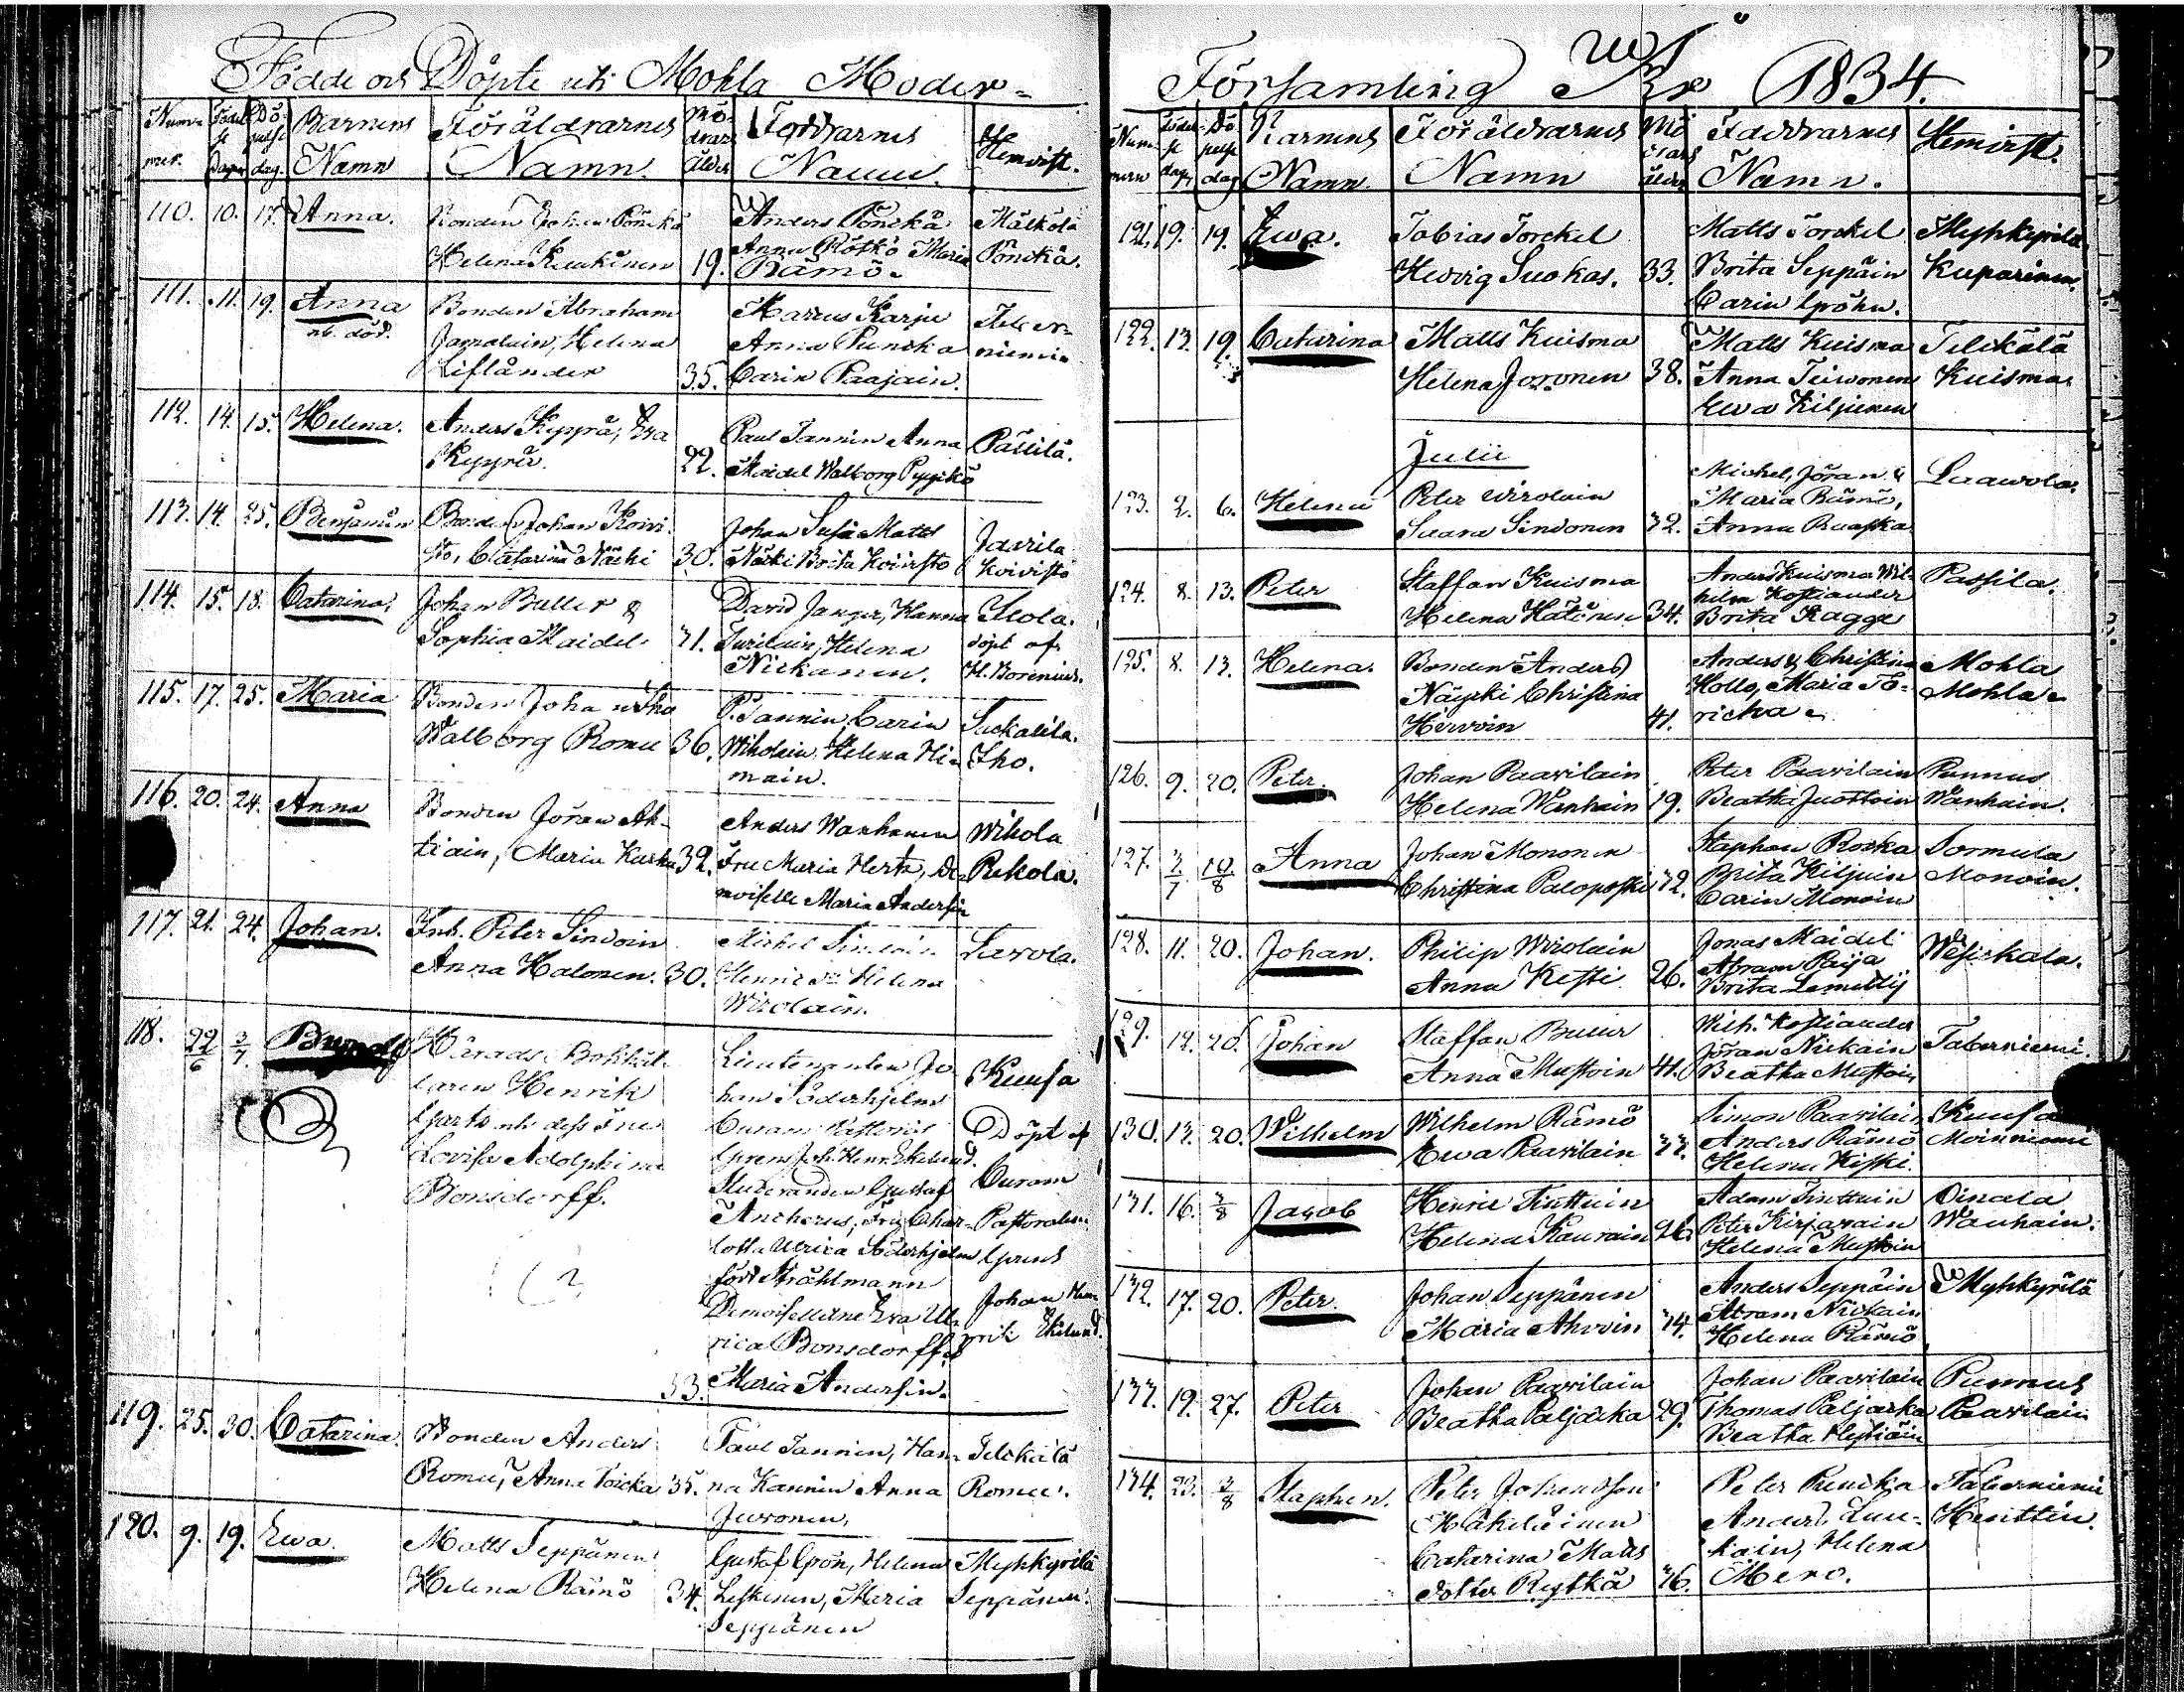 Födde och Döpte uti Mohla Moder-
Num-
mer.
Födel
se
Dagen
Dö-
pelse
dag.
Barnens
Namn
Föräldrarnes
Namn.
Mö-
drars
ålder
Faddrarnes
Namn.
Hemvist.
110. 10. 17. Anna.
Bonden Johan Pönckä
Helena 19.
Anders Pönckä
Anna Röttkö Maria
Rämö.
Mälkölä
Pönckä.
111. 11. 19. Anna
nb. död.
Bonden Abraham
Jamalain, Helena
Lifländer 35.
Marcus Karju
Anna Puncka
Carin Paajain.
niemi
112. 14. 15. Helena.
Anders Kyyrä, Eva
Kyyrä. 22.
Paul Tannin Anna
Maidel Walborg Pyykiö
Pällilä.
113. 14. 25. Benjamin
Bonden Johan Koivi-
sto, Catarina Näcki 30.
Johan Susi Matts
Näcki Brita Koivisto
Jaarila
Koivisto
114. 15. 18. Catarina.
Johan Buller &
Sophia Maidel 31.
David Jaeger, Hanna
Turilain, Helena
Nickanen.
Ilola.
döpt af
H. Borenius.
115. 17. 25. Maria
Bonden Johan Iho
Walborg Romu 36.
P. Tannin Carin
Wiholain, Helena Hi-
main.
Suckalila.
Iho.
116. 20. 24. Anna
Bonden Jöran Ah-
tiain, Maria Karhu 32.
Anders Wanhanen
Fru Maria Hertz, De-
moiselle Maria Andersin
Wihola
Rekola.
117. 21. 24. Johan.
Inh. Peter Sinvoin
Anna Halonen. 30.
Michel Sinvoin
Henric & Helena
Wirolain.
Lavola.
118. 22/6 3/7.
Härads Bokhål-
laren Henrik
och dess Fru
Lovisa Adolphina
Bonsdorff.
33.
Lieutenanten Jo-
han Söderhjelm
Curam Pastoris
Gerens Joh. Henr. Ekelund.
Studeranden Gustaf
Ancherus, Fru Char-
lotta Ulrica Söderhjelm
född Strählmann
Demoisellerne Eva Ul-
rica Bonsdorff &
Maria Andersin.
Kuusa
Döpt af
Curam
Pastoralem
Gerens
Johan Hen-
rik Ekelund.
119. 25. 30. Catarina.
Bonden Anders
Romu, Anna Toicka 35.
Paul Tannin, Han-
na Kannin Anna
Juvonen,
Telckälä
Romu.
120. 9. 19. Ewa.
Matts Seppänen
Helena Rämö 34.
Gustaf Grön, Helena
Leskinen, Maria
Seppänen
Myhkyrilä
Seppänen.
Församling År 1834.
Num-
mern
Födel-
se
dag.
Dö
pelse
dag
Barnens
Namn.
Föräldrarnes
Namn
Mö
drars
ålder
Faddrarnes
Namn.
Hemvist.
121. 19. 19. Ewa.
Tobias Torckel
Hedvig Suokas. 33.
Matts Torckel
Brita Seppäin
Carin Gröhn.
Myhkyrilä
Kuparinen.
122. 13. 19. Catarina
Matts Kuisma
Helena Joronen 38.
Matts Kuisma
Anna Teivonen
Ewa Kiljunen
Telckälä
Kuisma
Julii
123. 2. 6. Helena
Peter Wirolain
Saara Sinvonen 32.
Michel, Jöran &
Maria Rämö,
Anna Raapka
Laavola.
124. 8. 13. Peter
Staffan Kuisma
Helena Hätönen 34.
Anders Kuisma Wil-
helm Kostiander
Brita Ragge
Passila.
125. 8. 13. Helena.
Bonden Anders
Näyrki Christina
Hirvoin 41.
Anders & Christina
Hollo, Maria Tö-
rickä
Mohla
Mohla
126. 9. 20. Peter.
Johan Paavilain
Helena Wanhain 19.
Peter Paavilain
Beatha Juottoin
Punnus
Wanhain.
127. 3/7 10/8 Anna
Johan Mononen
Christina Paloposki 32.
Staphan Roska
Brita Kiljuin
Carin Monoin
Sormula
Monoin.
128. 11. 20. Johan.
Philip Wirolain
Anna Kesti 26.
Jonas Maidel
Abram Paija
Brita
Wesickala.
129. 12. 20. Johan
Staffan Buller
Anna Mustoin 41.
Wilh. Kostiander
Jöran Nickain
Beatha Mustoin
Taberniemi.
130. 13. 20. Wilhelm
Wilhelm Rämö
Ewa Paavilain 33.
Simon Paavilain
Anders Rämö
Helena Kiski.
Kuusa
131. 16. 3/8 Jacob
Henric Tinttuin
Helena Kauvain 26.
Adam Tinttuin
Peter Kirjavain
Helena Mustoin
Oinala
Wanhain.
132. 17. 20. Peter.
Johan Seppänen
Maria Ahvoin 34.
Anders Seppäin
Abram Nickain
Helena Rämö
Myhkyrilä
133. 19. 27. Peter
Johan Paavilain
Beatha Paljacka 29.
Johan Paavilain
Thomas Paljacka
Beatha
Punnus
Paavilain
134. 23. 3/8 Staphen.
Peter Johansson
Mäkeläinen
Catarina Matts
dotter Rytkä 36.
Peter Puncka
Anders Luu-
kain, Helena
Mero.
Taberniemi
Henttin.